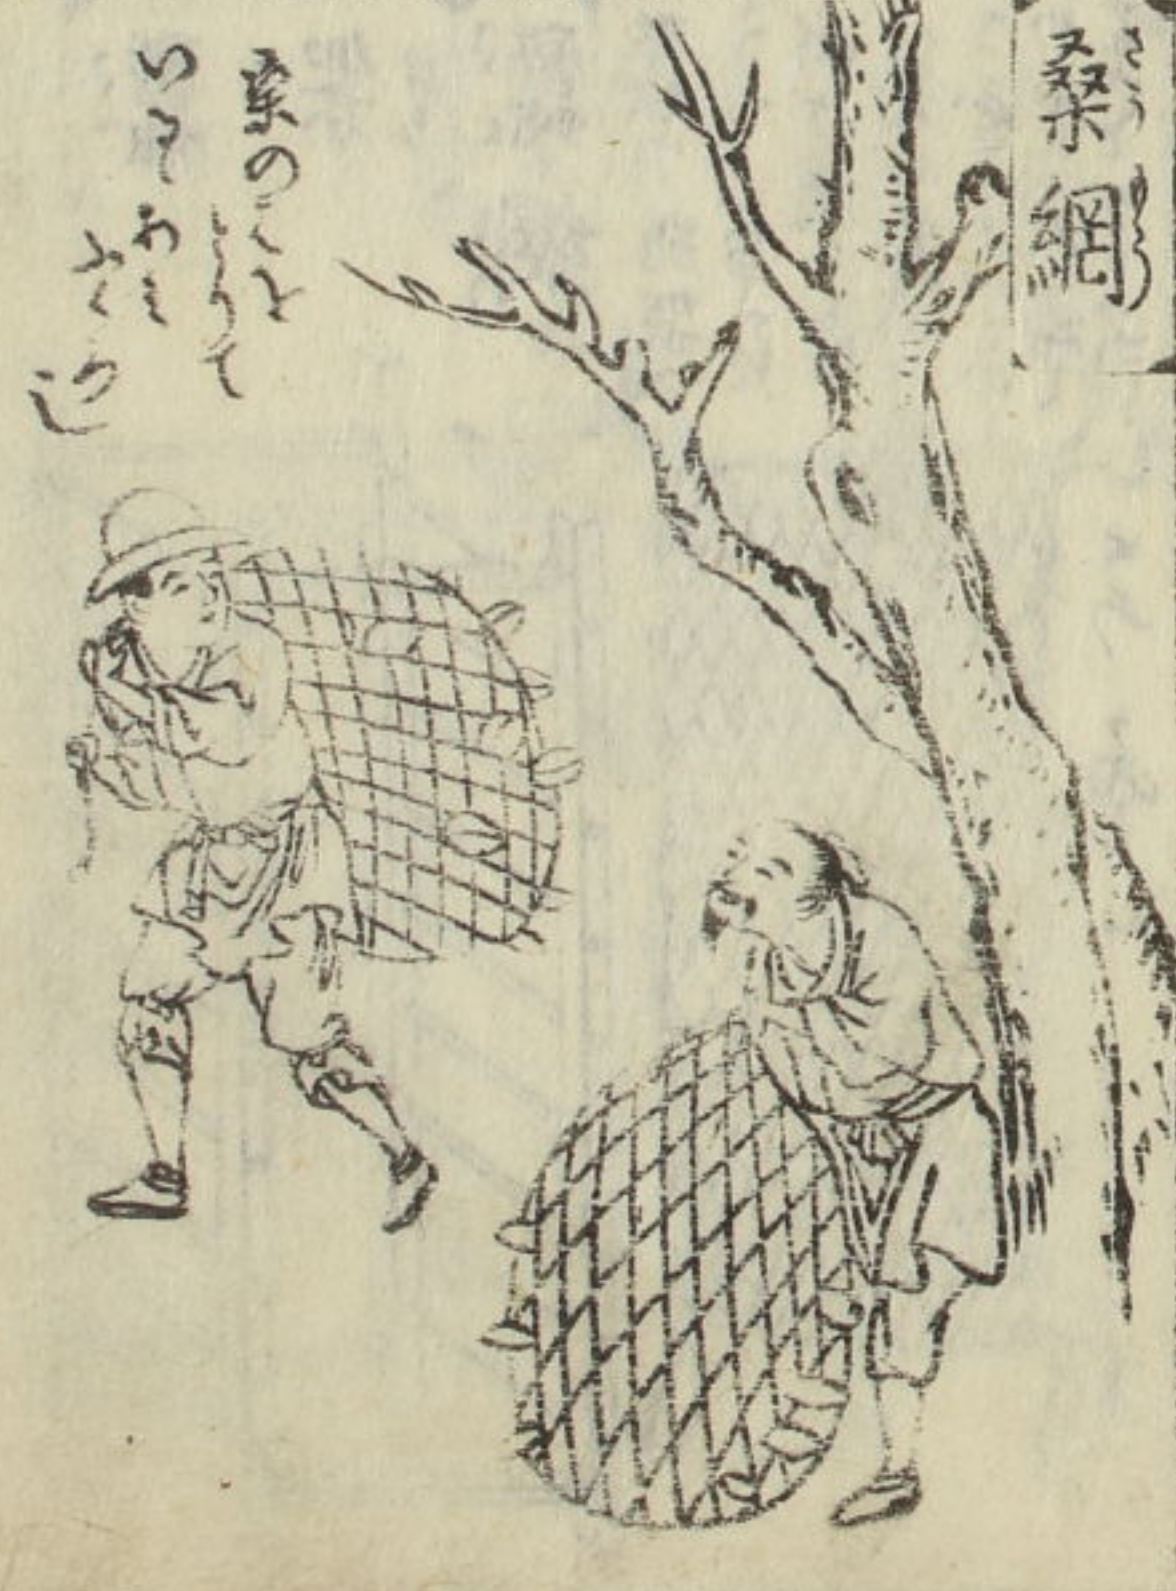 桑網
さう
桑のはを
とりて
いるゝあみ
ふくろ
也